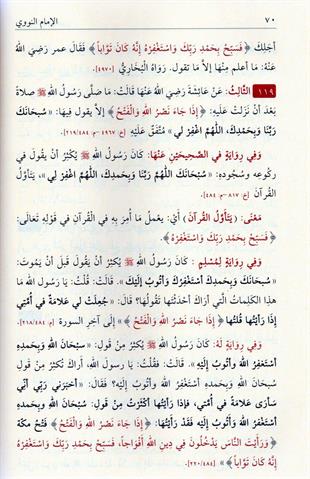 ٧٠ الإمام النووي
أجلِكَ ﴿ فَسَبِّحْ بِحَمْدِ رَبِّكَ وَاسْتَغْفِرْهُ إِنَّهُ كَانَ تَوَّاباً ﴾ فَقَالَ عمر رَضِيَ اللهُ
عَنْهُ: مَا أعلم مِنْهَا إلاَّ مَا تقول. رَوَاهُ البُخَارِيُّ [٤٩٧٠].
١١٩ الثَّالِثُ: عَنْ عَائِشَةَ رَضِيَ اللهُ عَنْهَا، قَالَتْ: مَا صَلَّى رَسُولُ اللهِ ﷺ صلاةً
بَعْدَ أَنْ نَزَلَتْ عَلَيهِ: ﴿ إِذَا جَاءَ نَصْرُ اللهِ وَالْفَتْحُ ﴾ إلاَّ يقول فِيهَا: «سُبْحَانَكَ
رَبَّنَا وَبِحَمْدِكَ، اللَّهُمَّ اغْفِرْ لي» مُتَّفَقٌ عَلَيْهِ [خ: ٤٩٦٧–م: ٢١٩/٤٨٤].
وَفِي رِوَايَةٍ في الصَّحِيحَيْنِ عَنْهَا: كَانَ رَسُولُ اللهِ ﷺ يُكْثِرُ أنْ يقُولَ في
ركُوعِه وسُجُودِهِ: «سُبْحَانَكَ اللَّهُمَّ رَبَّنَا وَبحَمْدِكَ، اللَّهُمَّ اغْفِرْ لي»، يَتَأوَّلُ
القُرآنَ [خ: ٨١٧–م: ٤٨٤].
مَعْنَى: (يَتَأَوَّلُ القُرآنَ) أيْ: يعْمَلُ مَا أُمِرَ بِهِ في الْقُرآنِ في قَوْلِهِ تَعَالَى:
﴿ فَسَبِّحْ بِحَمْدِ رَبِّكَ وَاسْتَغْفِرْهُ ﴾
وَفِي رِوَايَةٍ لِمُسْلِمٍ : كَانَ رَسُولُ اللهِ ﷺ يُكثِرُ أنْ يَقُولَ قَبلَ أنْ يَمُوتَ:
«سُبحَانَكَ وَبِحَمْدِكَ أسْتَغْفِرُكَ وَأتُوبُ إلَيْكَ». قَالَتْ: قُلْتُ: يَا رسُول اللهِ مَا
هذِهِ الكَلِمَاتُ الَّتي أرَاكَ أحْدَثْتَهَا تَقُولُهَا؟ قَالَ: «جُعِلَتْ لي عَلامَةٌ في أُمَّتي
إِذَا رَأيْتُهَا قُلتُهَا ﴿ إِذَا جَاءَ نَصْرُ اللهِ وَالْفَتْحُ ﴾ » إِلَى آخِرِ السورة [م: ٢١٨/٤٨٤].
وَفِي رِوَايَةٍ لَهُ: كَانَ رَسُولُ اللهِ ﷺ يُكْثِرُ مِنْ قَولِ: «سُبْحَانَ اللهِ وَبِحَمْدِهِ
أسْتَغفِرُ اللهَ وأتُوبُ إِلَيْهِ». قَالَتْ: فَقُلْتُ: يَا رسول اللهِ، أراكَ تُكثِرُ مِنْ قَولِ
سُبحَانَ اللهِ وَبِحَمدهِ أسْتَغْفِرُ اللهَ وأتُوبُ إِلَيْهِ؟ فَقَالَ: «أخبَرَني رَبِّي أنِّي
سَأرَى عَلامَةً في أُمَّتي، فإذَا رَأيْتُها أكْثَرْتُ مِنْ قَولِ: سُبْحَانَ اللهِ وَبِحَمْدهِ
أسْتَغْفِرُ اللهَ وَأتُوبُ إِلَيْهِ فَقَدْ رَأَيْتُهَا: ﴿ إِذَا جَاءَ نَصْرُ اللهِ وَالْفَتْحُ ﴾ فَتْحُ مَكّةَ
﴿ وَرَأَيْتَ النَّاسَ يَدْخُلُونَ فِي دِينِ اللهِ أَفْوَاجاً، فَسَبِّحْ بِحَمْدِ رَبِّكَ وَاسْتَغْفِرْهُ
إِنَّهُ كَانَ تَوَّاباً ﴾ » [٢٢٠/٤٨٤].